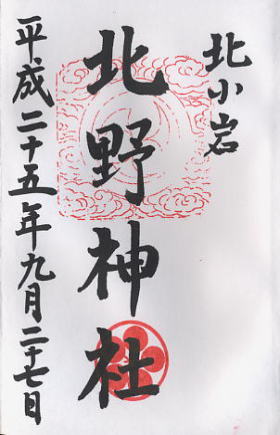 北小岩
北野神社
平成二十五年九月二十七日